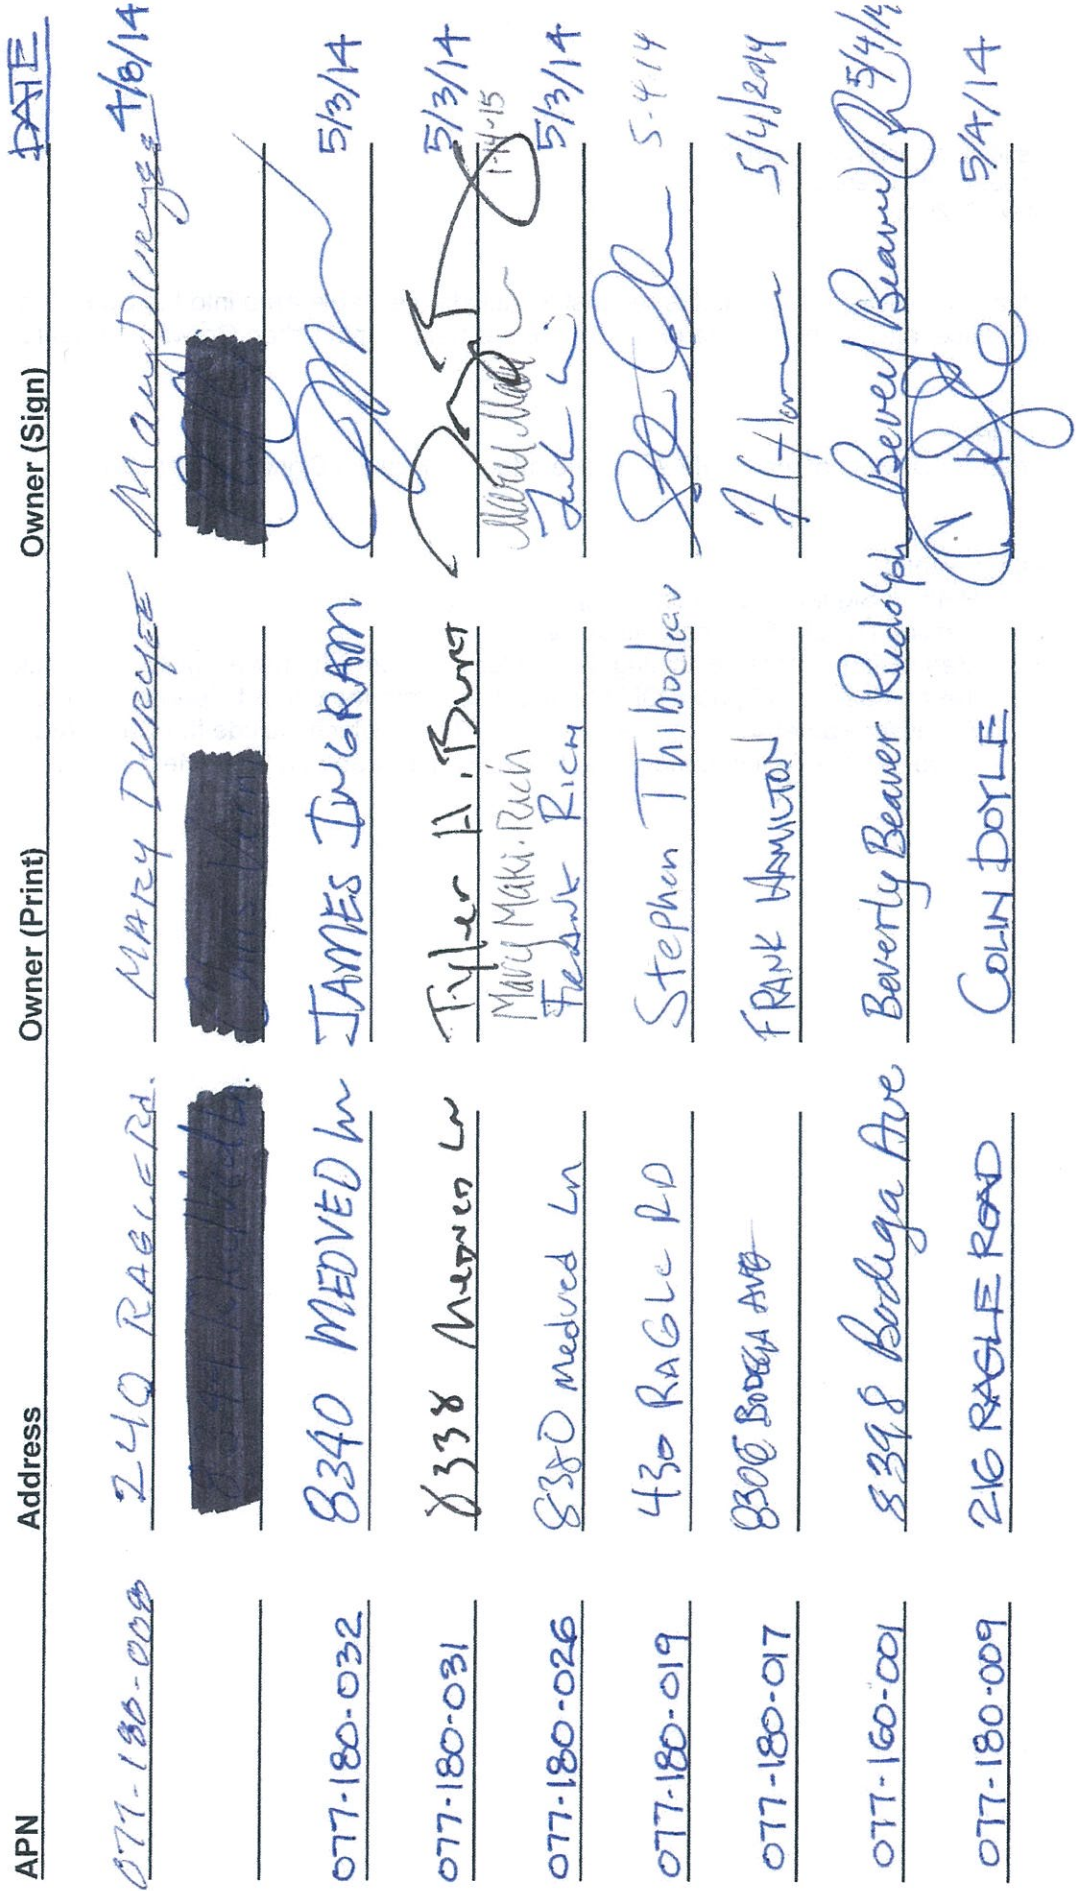 APN Address Owner (Print) Owner (Sign) DATE
077-180-008 240 RAGLE Rd. MARY DURYEE Mary Duryee 4/8/14
077-180-032 8340 MEDVED Ln JAMES INGRAM 5/3/14
077-180-031 8338 Medved Ln Tyler H. Burt 5/3/14
Mary Maki-Rich 1-14-15
077-180-026 8380 Medved Ln FRANK RICH 5/3/14
077-180-019 430 RAGLE RD Stephen Thibodeau 5-4-14
077-180-017 BODEGA AVE FRANK HAMILTON 5/4/2014
077-160-001 8398 Bodega Ave Beverly Beaver Rudolph 5/4/14
077-180-009 216 RAGLE ROAD COLIN DOYLE 5/4/14